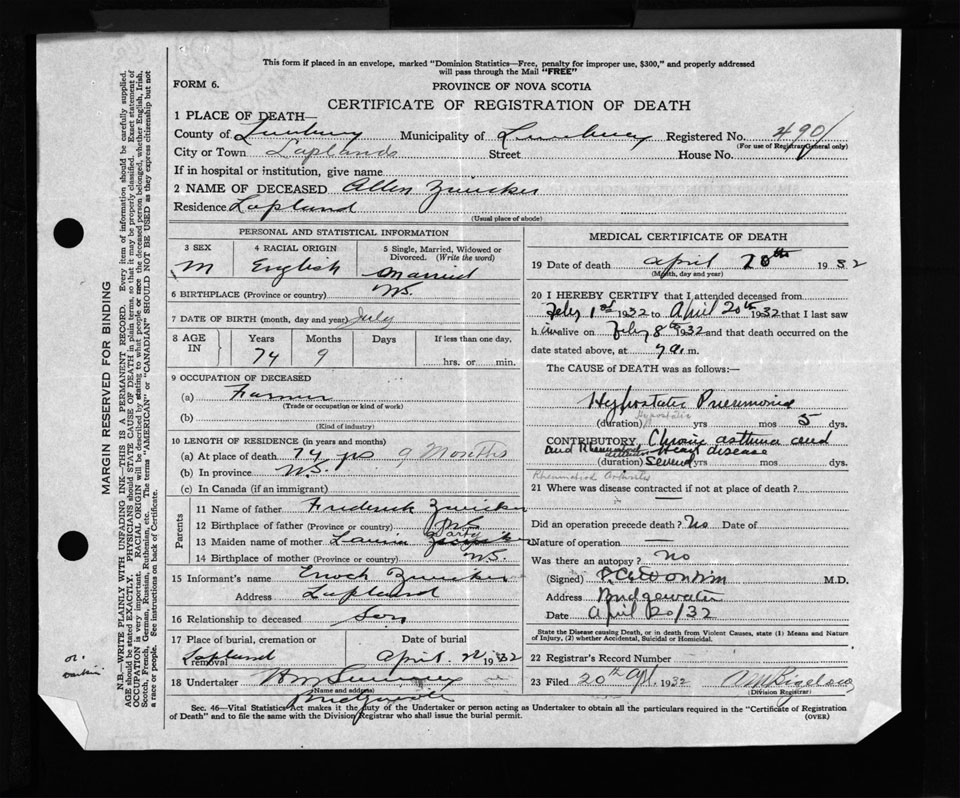 This form if placed in an envelope, marked "Dominion Statistics—Free, penalty for improper use, $300," and properly addressed
will pass through the Mail "FREE"
FORM 6.
PROVINCE OF NOVA SCOTIA
CERTIFICATE OF REGISTRATION OF DEATH
1 PLACE OF DEATH—
County of Lunenburg Municipality of Lunenburg Registered No. 4901
(For use of Registrar General only)
City or Town Laplands Street House No.
If in hospital or institution, give name
2 NAME OF DECEASED Allen Zwicker
Residence Lapland
(Usual place of abode)
PERSONAL AND STATISTICAL INFORMATION
3 SEX 4 RACIAL ORIGIN 5 Single, Married, Widowed or Divorced. (Write the word)
M English Married
6 BIRTHPLACE (Province or country) N.S.
7 DATE OF BIRTH (month, day and year) July
8 AGE IN Years Months Days If less than one day,
74 9 hrs. or min.
9 OCCUPATION OF DECEASED
(a) Farmer
(Trade or occupation or kind of work)
(b)
(Kind of industry)
10 LENGTH OF RESIDENCE (in years and months)
(a) At place of death 74 yrs 9 Months
(b) In province N.S.
(c) In Canada (if an immigrant)
Parents
11 Name of father Frederick Zwicker
12 Birthplace of father (Province or country) N.S.
13 Maiden name of mother
14 Birthplace of mother (Province or country) N.S.
15 Informant's name Enoch Zwicker
Address Lapland
16 Relationship to deceased Son
17 Place of burial, cremation or removal Date of burial
Lapland April 22 1932
18 Undertaker
(Name and address)
Bridgewater
MEDICAL CERTIFICATE OF DEATH
19 Date of death April 20th 1932
(Month, day and year)
20 I HEREBY CERTIFY that I attended deceased from
Feby 1st 1932 to April 20th 1932 that I last saw
him alive on Feby 8th 1932 and that death occurred on the
date stated above, at 7 a. m.
The CAUSE of DEATH was as follows:—
Hypostatic Pneumonia
Hypostatic
(duration) yrs mos 5 dys.
CONTRIBUTORY Chronic asthma and
and Rheum heart disease
(duration) Several yrs mos dys.
Rheumatoid Arthritis
21 Where was disease contracted if not at place of death?
Did an operation precede death? No Date of
Nature of operation
Was there an autopsy? No
(Signed) M.D.
Address Bridgewater
Date April 20/32
State the Disease causing Death, or in death from Violent Causes, state (1) Means and Nature of Injury, (2) whether Accidental, Suicidal or Homicidal.
22 Registrar's Record Number
23 Filed 20th Apl 1932 Bigelow
(Division Registrar)
Sec. 46—Vital Statistics Act makes it the duty of the Undertaker or person acting as Undertaker to obtain all the particulars required in the "Certificate of Registration
of Death" and to file the same with the Division Registrar who shall issue the burial permit.
(OVER)
MARGIN RESERVED FOR BINDING
N.B.—WRITE PLAINLY WITH UNFADING INK—THIS IS A PERMANENT RECORD. Every item of information should be carefully supplied.
AGE should be stated EXACTLY. PHYSICIANS should STATE CAUSE OF DEATH in plain terms, so that it may be properly classified. Exact statement of
OCCUPATION is very important. RACIAL ORIGIN will be described by stating to what people or race the deceased person belonged, whether English, Irish,
Scotch, French, German, Russian, Ruthenian, etc. The terms "AMERICAN" or "CANADIAN" SHOULD NOT BE USED as they express citizenship but not
a race or people. See instructions on back of Certificate.